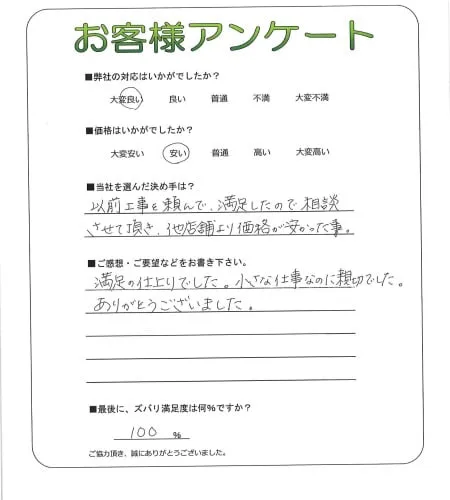 お客様アンケート
■弊社の対応はいかがでしたか?
大変良い 良い 普通 不満 大変不満
■価格はいかがでしたか?
大変安い 安い 普通 高い 大変高い
■当社を選んだ決め手は?
以前工事を頼んで、満足したので相談
させて頂き、他店舗より価格が安かった事。
■ご感想・ご要望などをお書き下さい。
満足の仕上りでした。小さな仕事なのに親切でした。
ありがとうございました。
■最後に、ズバリ満足度は何%ですか?
100 %
ご協力頂き、誠にありがとうございました。